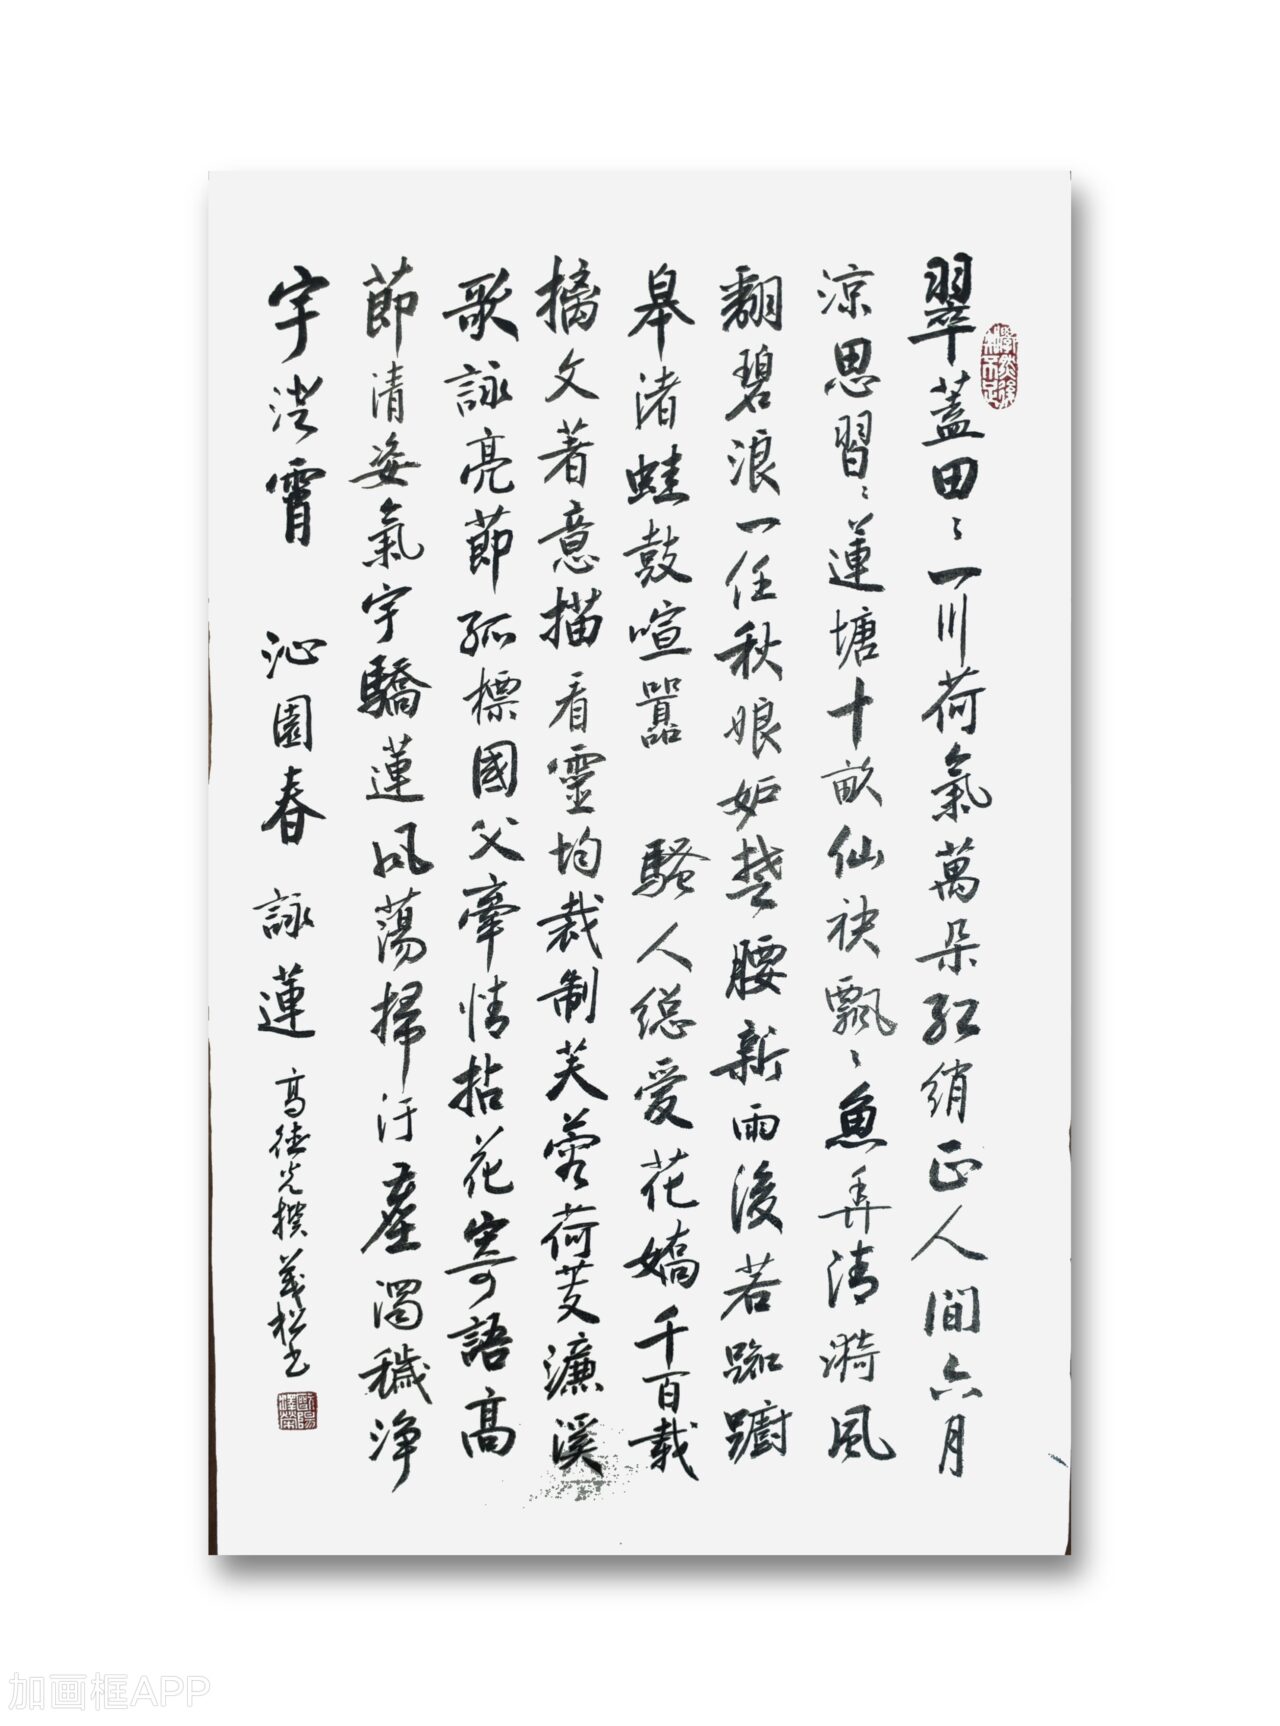 翠蓋田〻一川荷氣萬朵紅綃正人間六月
涼思習〻蓮塘十畝仙袂飄〻魚弄清漪風
翻碧浪一任秋娘妒楚腰新雨後若踟躕
皋渚蛙鼓喧囂　騷人總愛花嬌千百載
摛文著意描看靈均裁制芙蓉荷芰濂溪
歌詠亮節孤標國父牽情拈花寄語高
節清姿氣宇驕蓮風蕩掃汙塵濁穢淨
宇澄霄　沁園春　詠蓮　高德光撰義松書
學然後知不足
歐陽
加画框APP